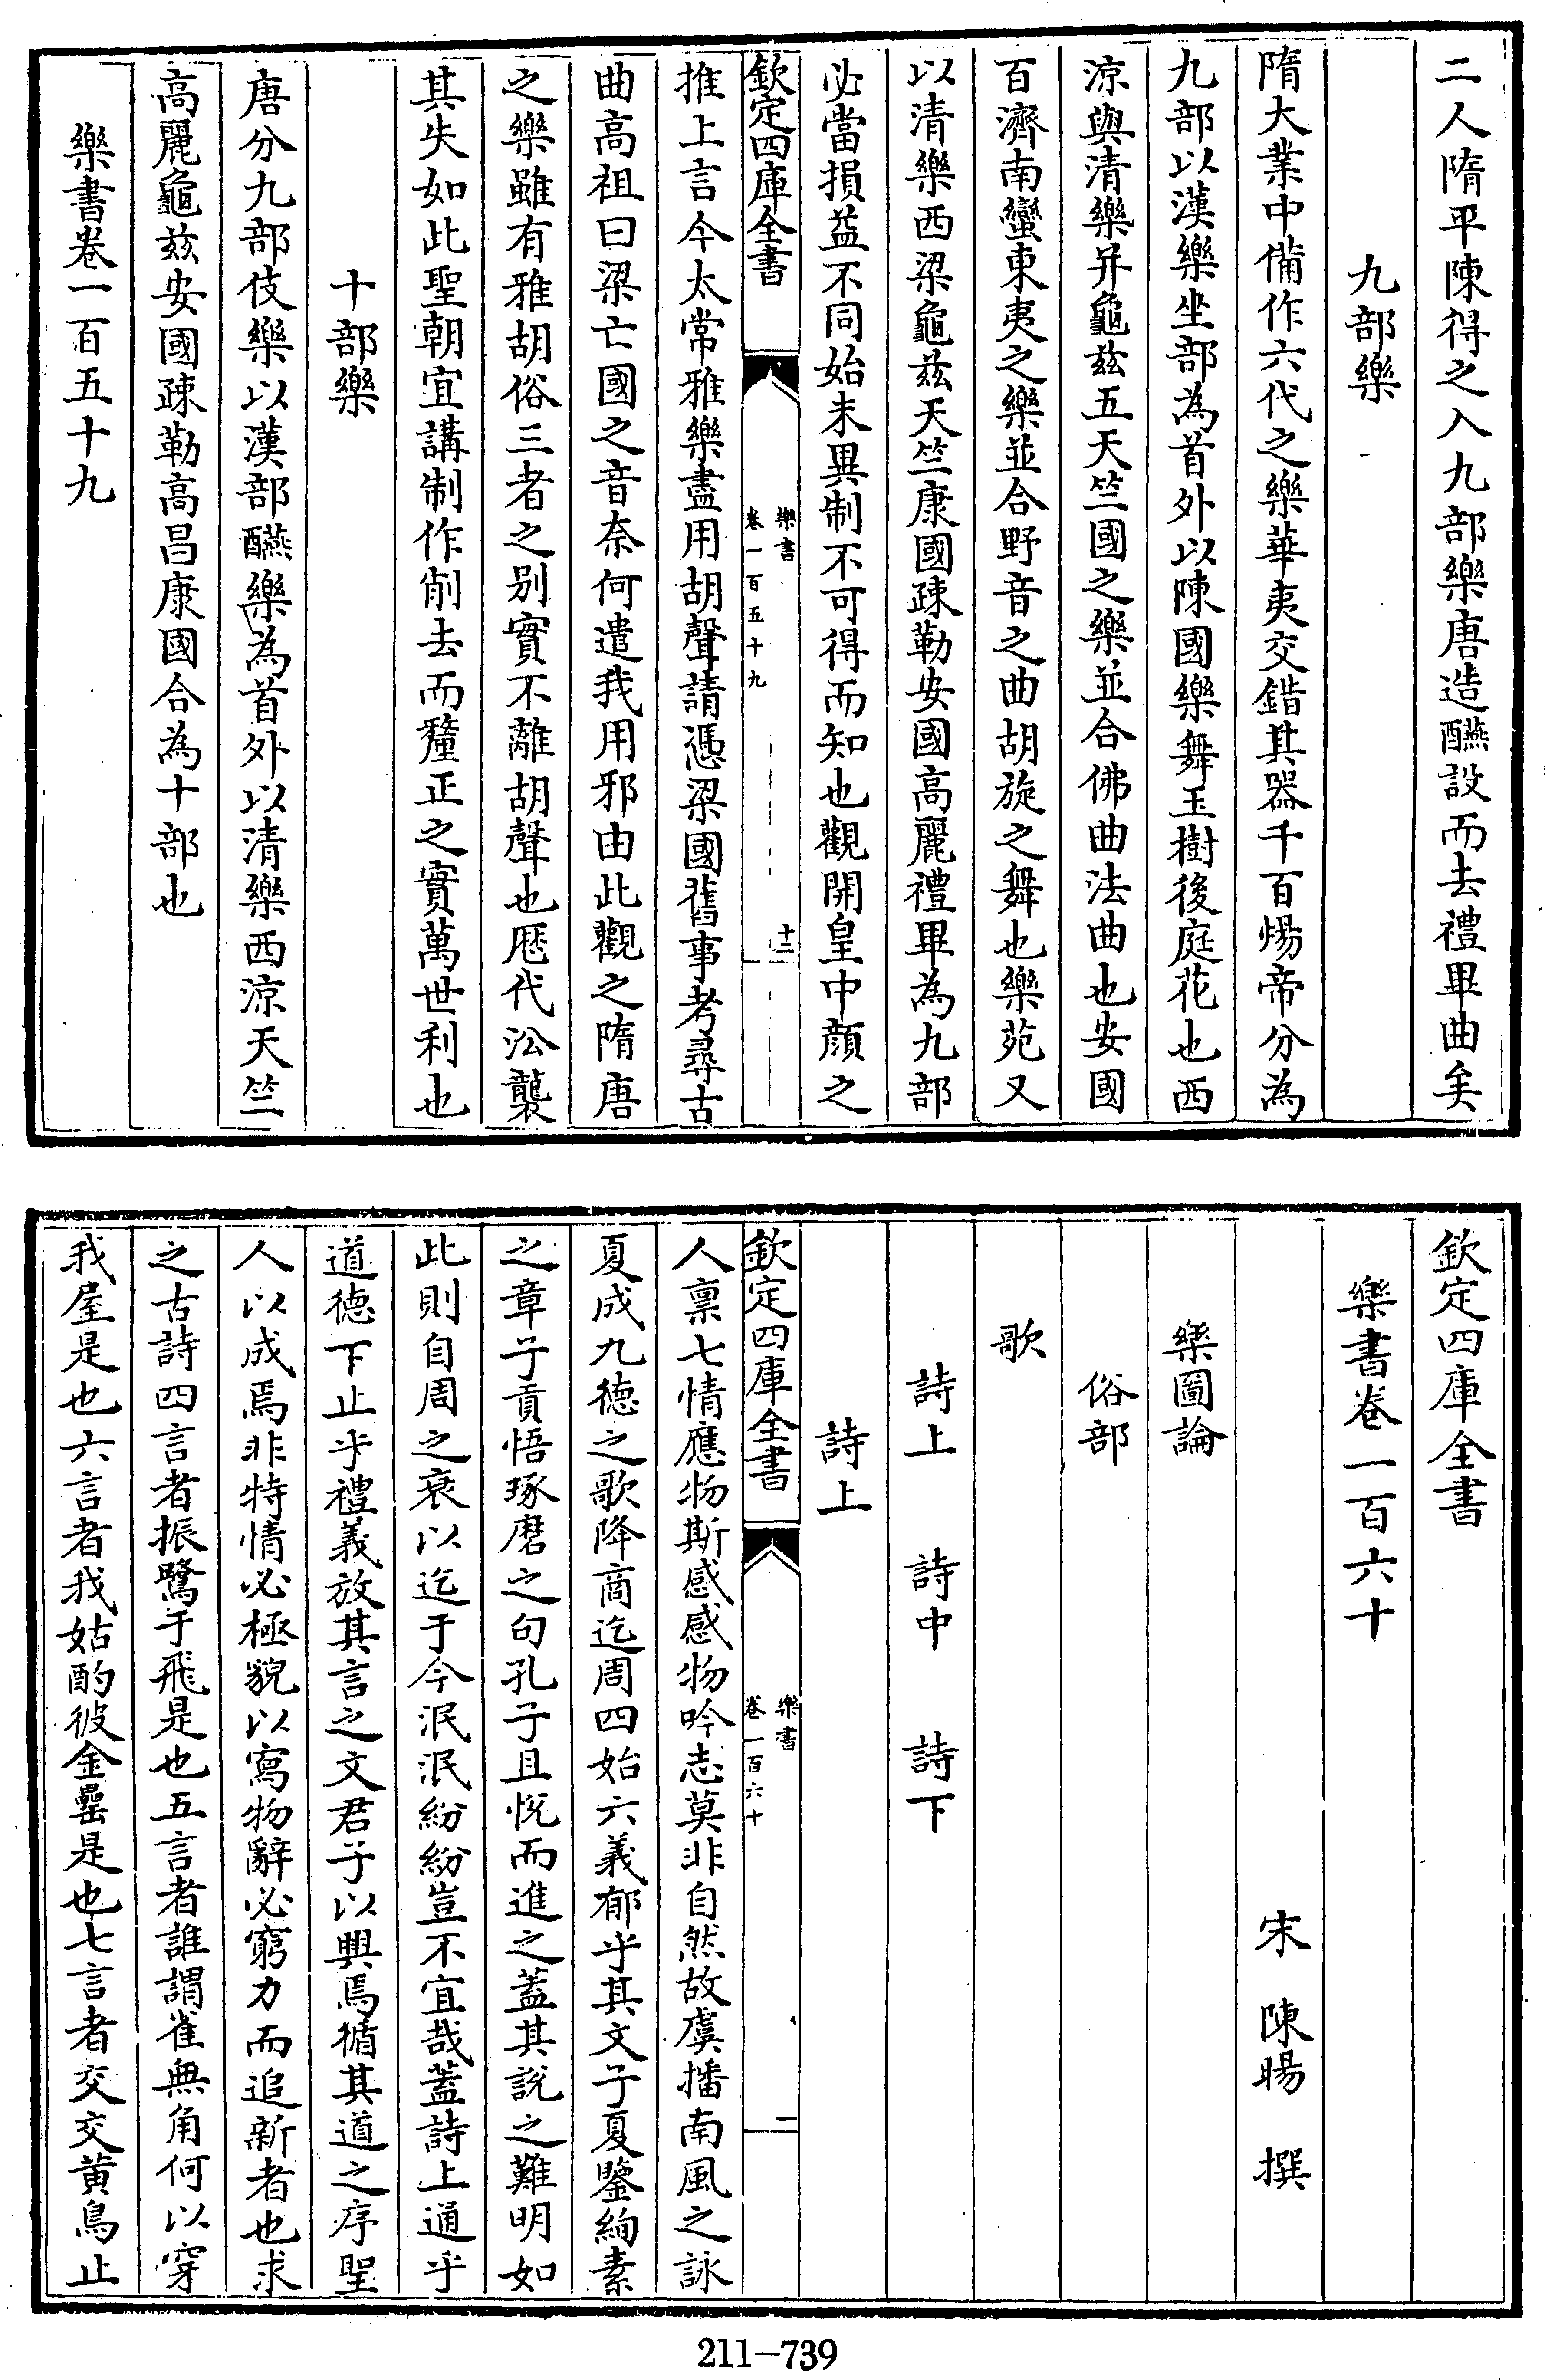 二人隋平陳得之入九部樂唐造醼設而去禮畢曲矣
九部樂
隋大業中備作六代之樂華夷交錯其器千百煬帝分為
九部以漢樂坐部為首外以陳國樂舞玉樹後庭花也西
涼與清樂并龜兹五天竺國之樂並合佛曲法曲也安國
百濟南蠻東夷之樂並合野音之曲胡旋之舞也樂苑又
以清樂西梁龜兹天竺康國疎勒安國高麗禮畢為九部
必當損益不同始末異制不可得而知也觀開皇中顔之
欽定四庫全書
樂書
卷一百五十九
十二
推上言今太常雅樂盡用胡聲請憑梁國舊事考尋古
曲高祖曰梁亡國之音奈何遣我用邪由此觀之隋唐
之樂雖有雅胡俗三者之别實不離胡聲也歴代沿襲
其失如此聖朝宜講制作削去而釐正之實萬世利也
十部樂
唐分九部伎樂以漢部醼樂為首外以清樂西涼天竺
高麗龜兹安國疎勒高昌康國合為十部也
樂書卷一百五十九
欽定四庫全書
樂書卷一百六十
宋 陳暘 撰
樂圖論
俗部
歌
詩上 詩中 詩下
詩上
欽定四庫全書
樂書
卷一百六十
一
人禀七情應物斯感感物吟志莫非自然故虞播南風之詠
夏成九德之歌降商迄周四始六義郁乎其文子夏鑒絢素
之章子貢悟琢磨之句孔子且悦而進之蓋其說之難明如
此則自周之衰以迄于今泯泯紛紛豈不宜哉蓋詩上通乎
道德下止乎禮義放其言之文君子以興焉循其道之序聖
人以成焉非特情必極貌以寫物辭必窮力而追新者也求
之古詩四言者振鷺于飛是也五言者誰謂雀無角何以穿
我屋是也六言者我姑酌彼金罍是也七言者交交黄鳥止
211-739